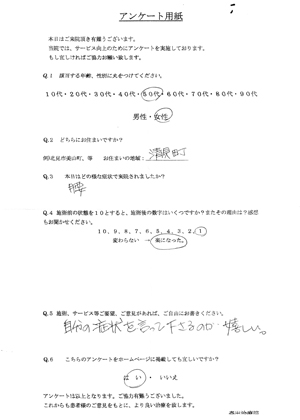 アンケート用紙
本日はご来院頂き有難うございます。
当院では、サービス向上のためにアンケートを実施しております。
もし宜しければご協力お願い致します。
Q.1 該当する年齢、性別に丸をつけてください。
10代・20代・30代・40代・50代・60代・70代・80代・90代
男性・女性
Q.2 どちらにお住まいですか?
例)北見市美山町、等 お住まいの地域:清見町
Q.3 本日はどの様な症状で来院されましたか?
腰
Q.4 施術前の状態を10とすると、施術後の数字はいくつですか?またその理由は?感想もお聞かせください。
10、9、8、7、6、5、4、3、2、1
変わらない → 楽になった。
Q.5 施術、サービス等ご要望、ご意見があれば、ご自由にお書きください。
自分の症状を言って下さるのが嬉しい。
Q.6 こちらのアンケートをホームページに掲載しても宜しいですか?
はい・いいえ
アンケートは以上となります。ご協力有難うございました。
これからも患者様のご意見をもとに、より良い治療を致します。